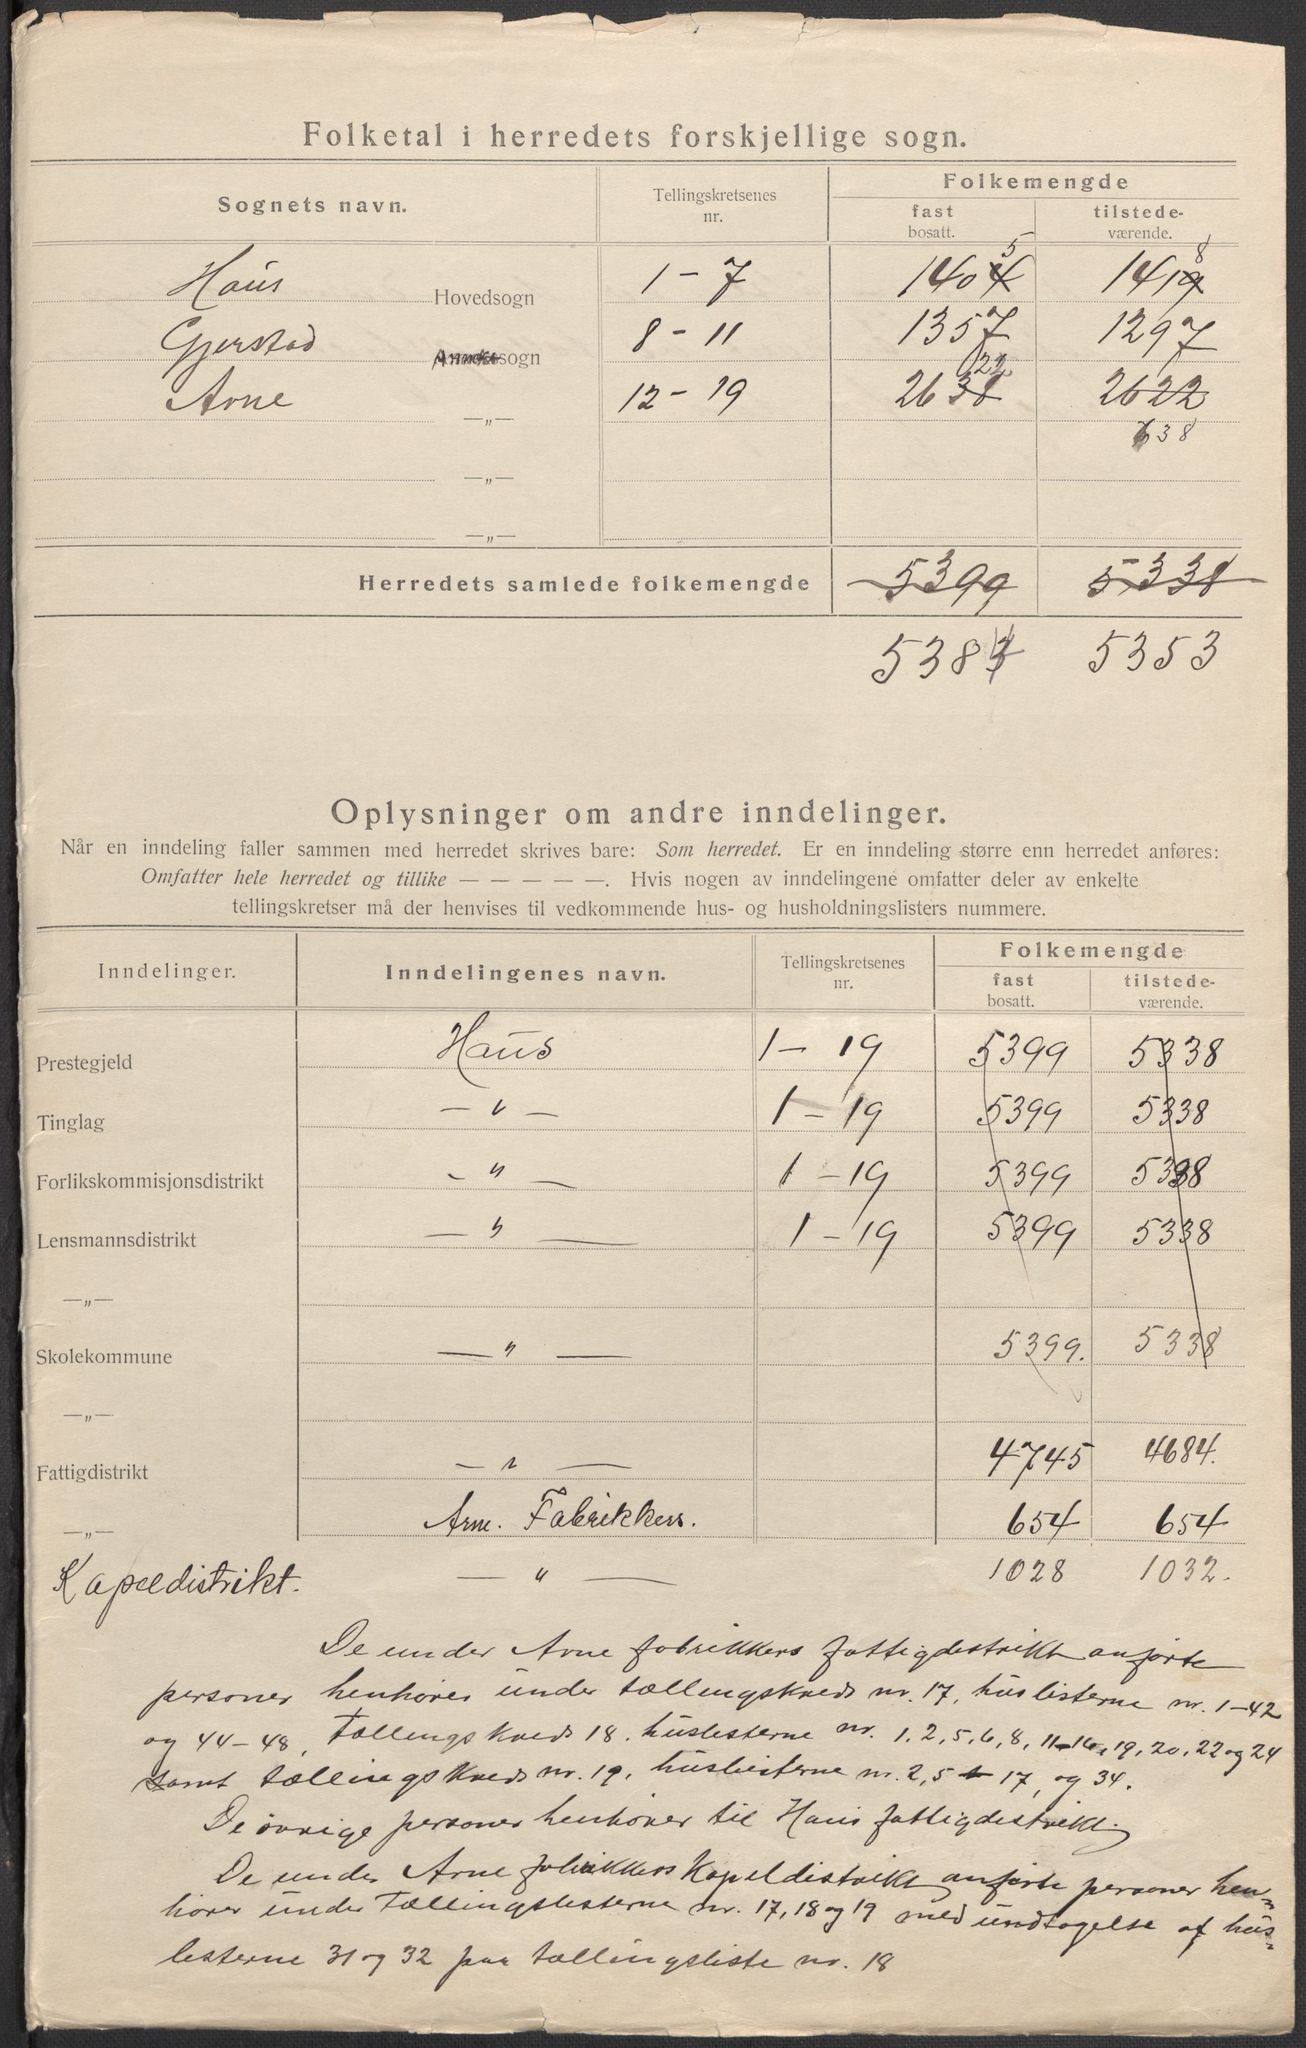 Folketal i herredets forskjellige sogn.
Sognets navn. Tellingskretsenes nr. Folkemengde
fast bosatt. tilstede-værende.
Haus Hovedsogn 1 - 7 1404 5 1419 8
Gjerstad Annekssogn 8 - 11 1357 1297
Arne —„— 12 - 19 2638 22 2622
638
—„—
—„—
Herredets samlede folkemengde 5399 5338
538 5353
Oplysninger om andre inndelinger.
Når en inndeling faller sammen med herredet skrives bare: Som herredet. Er en inndeling større enn herredet anføres:
Omfatter hele herredet og tillike — — — — —. Hvis nogen av inndelingene omfatter deler av enkelte
tellingskretser må der henvises til vedkommende hus- og husholdningslisters nummere.
Inndelinger. Inndelingenes navn. Tellingskretsenes nr. Folkemengde
fast bosatt. tilstede-værende.
Prestegjeld Haus 1 - 19 5399 5338
Tinglag — „ — 1 - 19 5399 5338
Forlikskommisjonsdistrikt — „ — 1 - 19 5399 5338
Lensmannsdistrikt — „ — 1 - 19 5399 5338
—„—
Skolekommune — „ — 5399. 5338
—„—
Fattigdistrikt — „ — 4745 4684.
—„— Arne Fabrikkers. 654 654
Kapeldistrikt. — „ — 1028 1032.
De under Arne fabrikkers fattigdistrikt anførte
personer henhører under tællingskreds nr. 17, huslisterne nr. 1-42
og 44-48, Tællingskreds 18. huslisterne nr. 1, 2, 5, 6, 8, 11-16, 19, 20, 22 og 24
samt tællingskreds nr. 19, huslisterne nr. 2, 5 - 17, og 34.
De øvrige personer henhører til Haus fattigdistrikt.
De under Arne fabrikkers Kapeldistrikt anførte personer hen-
hører under Tællingslisterne nr. 17, 18 og 19 med undtagelse af hus-
listerne 31 og 32 paa tællingsliste nr. 18